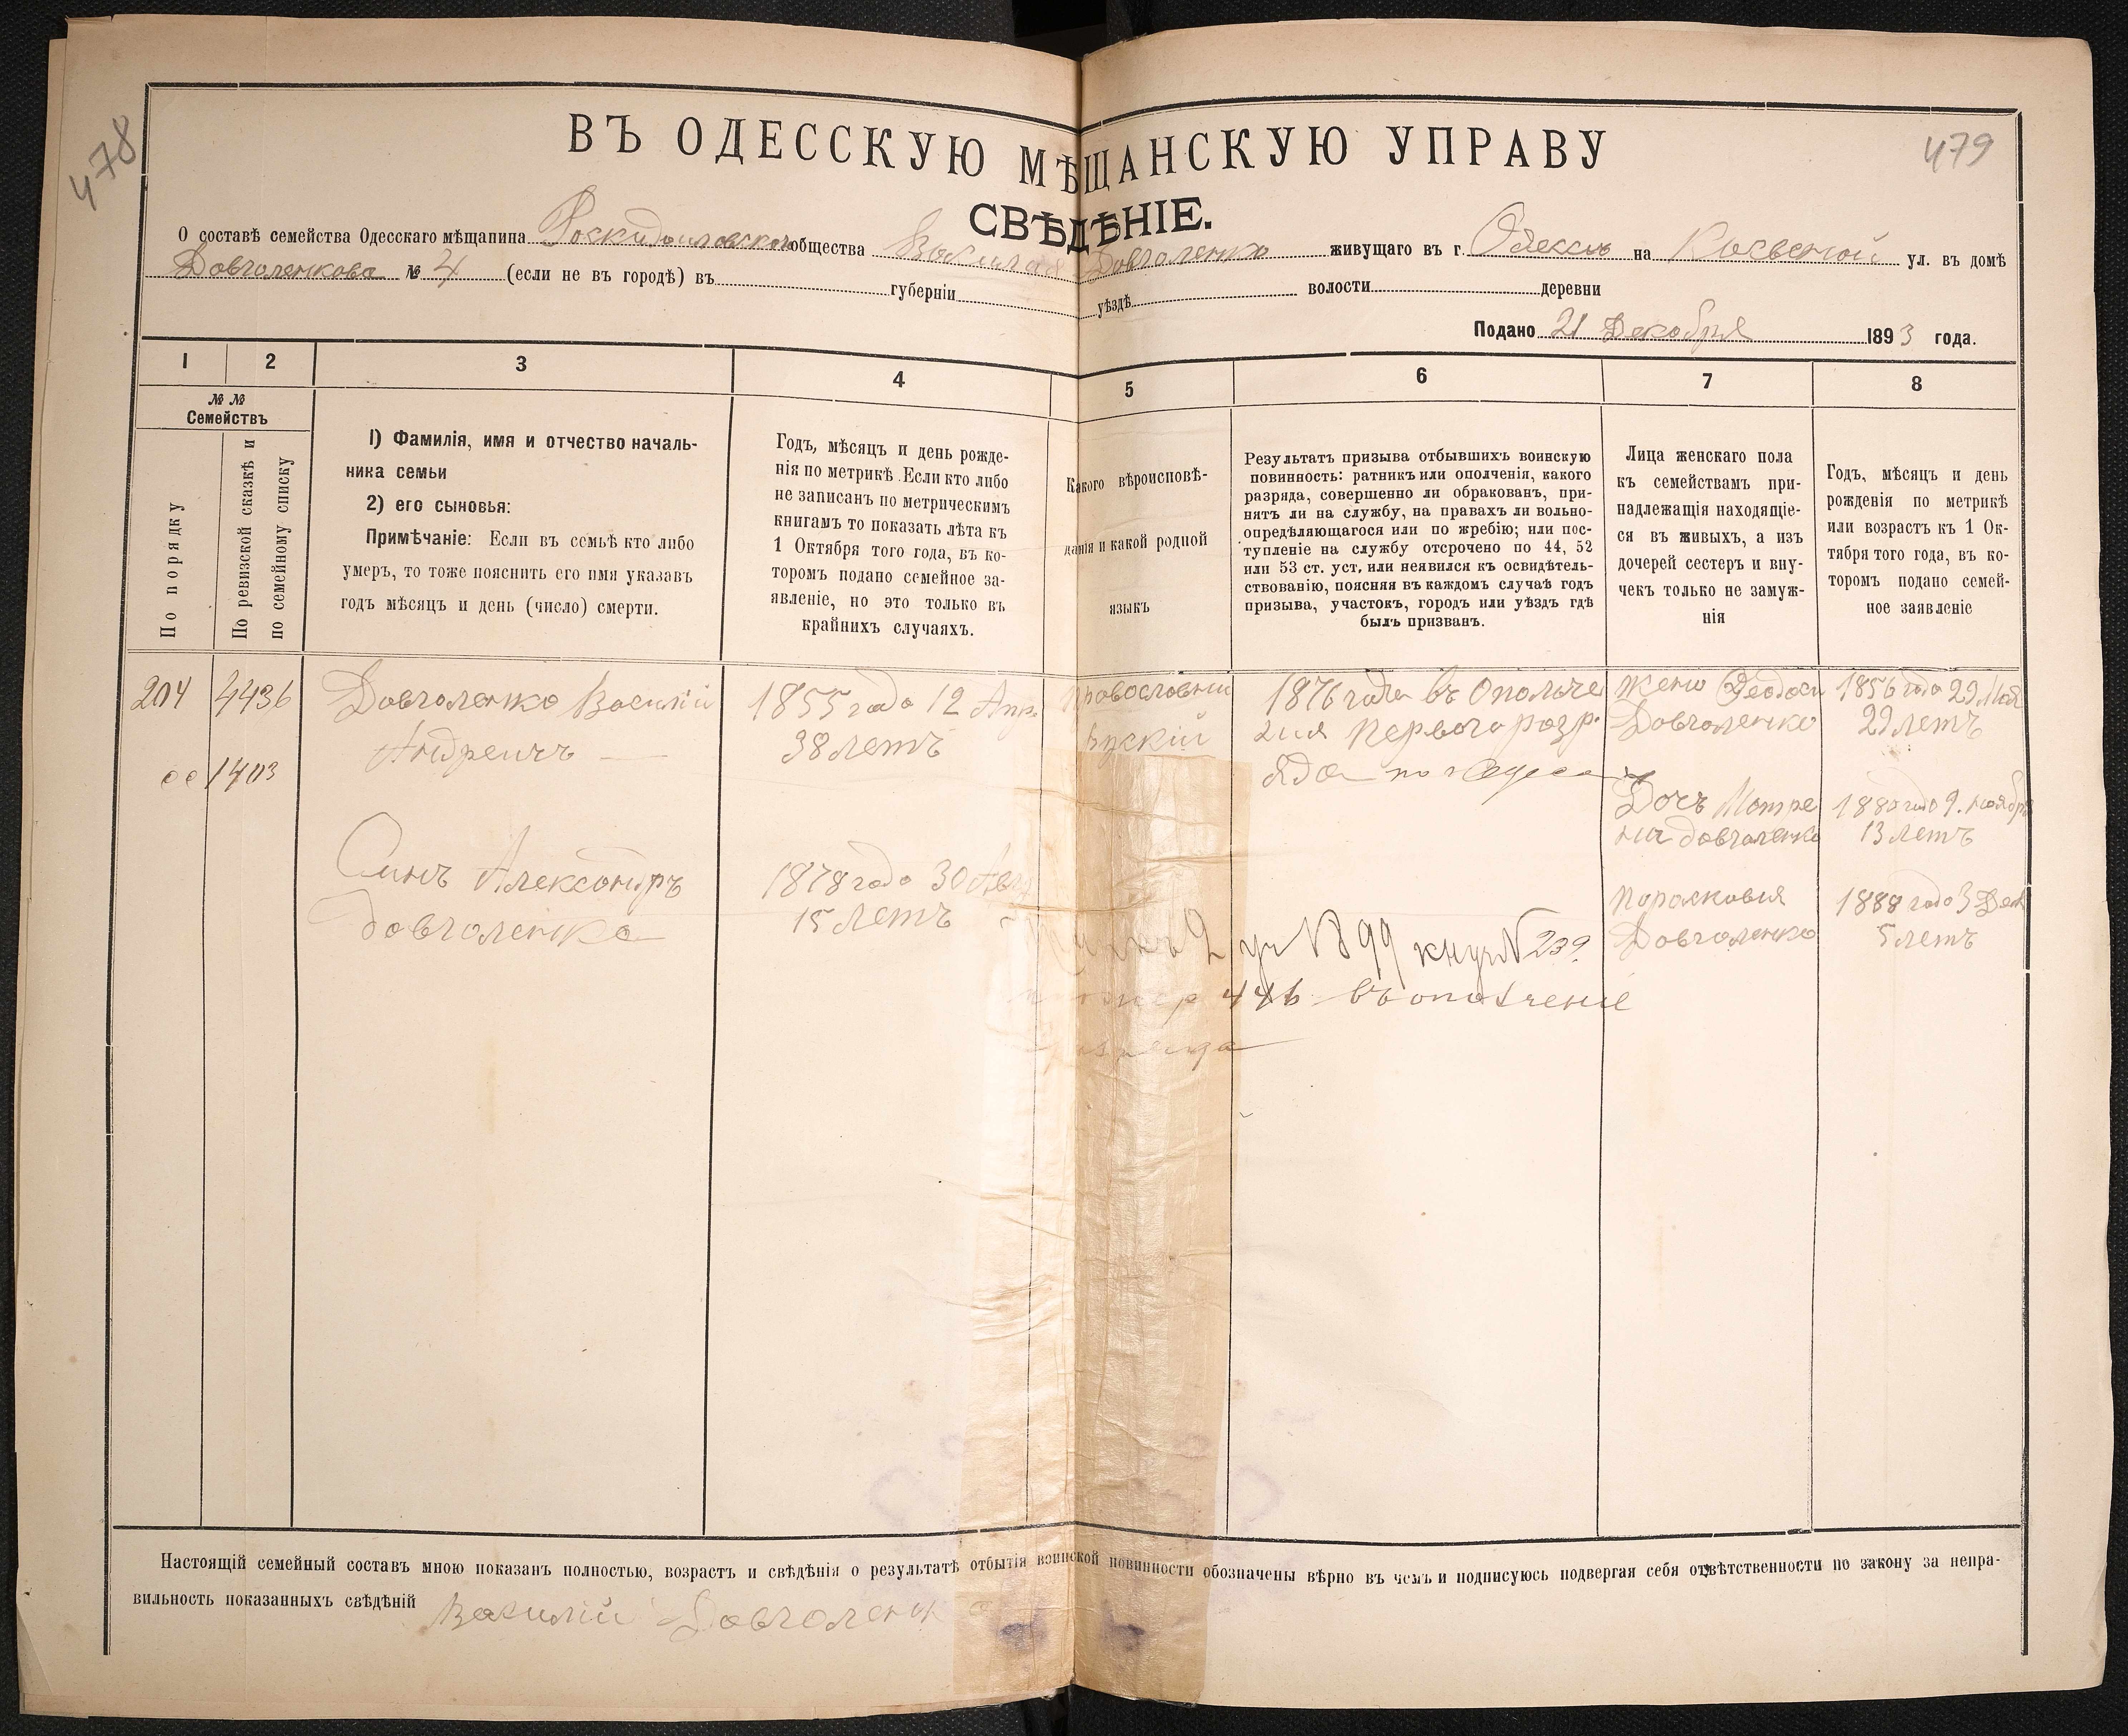 478
479
ВЪ ОДЕССКУЮ МѢЩАНСКУЮ УПРАВУ
СВѢДѢНІЕ.
О составѣ семейства Одесскаго мѣщанина общества Довголенко живущаго въ г. Одессѣ на Косвеной ул. въ домѣ
Довголенкова № 4 (если не въ городѣ) въ губерніи уѣздѣ волости деревни
Подано 21 Декобря 1893 года.
1 2 3 4 5 6 7 8
№ №
Семействъ
По порядку
По ревизской сказкѣ и
по семейному списку
1) Фамилія, имя и отчество началь-
ника семьи
2) его сыновья:
Примѣчаніе: Если въ семьѣ кто либо
умеръ, то тоже пояснить его имя указавъ
годъ мѣсяцъ и день (число) смерти.
Годъ, мѣсяцъ и день рожде-
нія по метрикѣ. Если кто либо
не записанъ по метрическимъ
книгамъ то показать лѣта къ
1 Октября того года, въ ко-
торомъ подано семейное за-
явленіе, но это только въ
крайнихъ случаяхъ.
Какого вѣроисповѣ-
данія и какой родной
языкъ
Результатъ призыва отбывшихъ воинскую
повинность: ратникъ или ополченія, какого
разряда, совершенно ли обракованъ, при-
нятъ ли на службу, на правахъ ли вольно-
опредѣляющагося или по жребію; или пос-
тупленіе на службу отсрочено по 44, 52
или 53 ст. уст. или неявился къ освидѣтель-
ствованію, поясняя въ каждомъ случаѣ годъ
призыва, участокъ, городъ или уѣздъ гдѣ
былъ призванъ.
Лица женскаго пола
къ семействамъ при-
надлежащія находящіе-
ся въ живыхъ, а изъ
дочерей сестеръ и вну-
чекъ только не замуж-
нія
Годъ, мѣсяцъ и день
рожденія по метрикѣ
или возрастъ къ 1 Ок-
тября того года, въ ко-
торомъ подано семей-
ное заявленіе
204 4436
1403
Довголенко Василій
Андреичъ
1855 годо 12 Апр.
38 летъ
Провославни
Рускій
1876 года въ Ополче
ния Первого розр
яда по г Одесс
Жено Феодоси
Довголенко
1856 годо 29 Мая
29 летъ
Дочъ Мотре
на Довголенко
1880 годо 9. ноября
13 летъ
Синъ Александръ
довголенко
1878 годо 30 Авг
15 летъ
Порасковия
Довголенко
1888 годо 3 Дек
5 летъ
2 уч 1899 № 239.
446 въ ополчение
разряда
Настоящій семейный составъ мною показанъ полностью, возрастъ и свѣдѣнія о результатѣ отбытія воинской повинности обозначены вѣрно въ чемъ и подписуюсь подвергая себя отвѣтственности по закону за непра-
вильность показанныхъ свѣдѣній Василій Довголенк